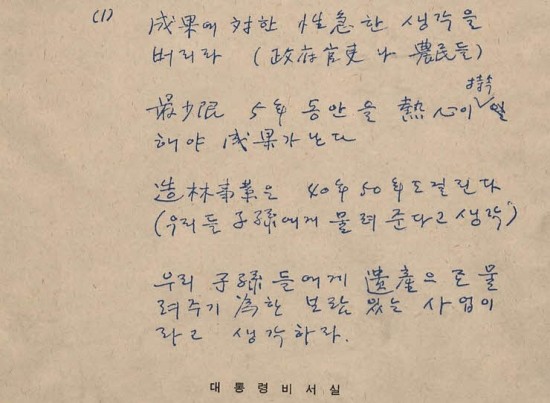 (1) 成果에 対한 性急한 생각을
버리라 (政府官吏나 農民들)
最少限 5年 동안을 熱心이 持続
해야 成果가 난다
造林事業은 40年 50年도 걸린다
(우리들 子孫에게 물려 준다고 생각)
우리 子孫들에게 遺産으로 물
려주기 為한 보람 있는 사업이
라고 생각하라.
대통령비서실